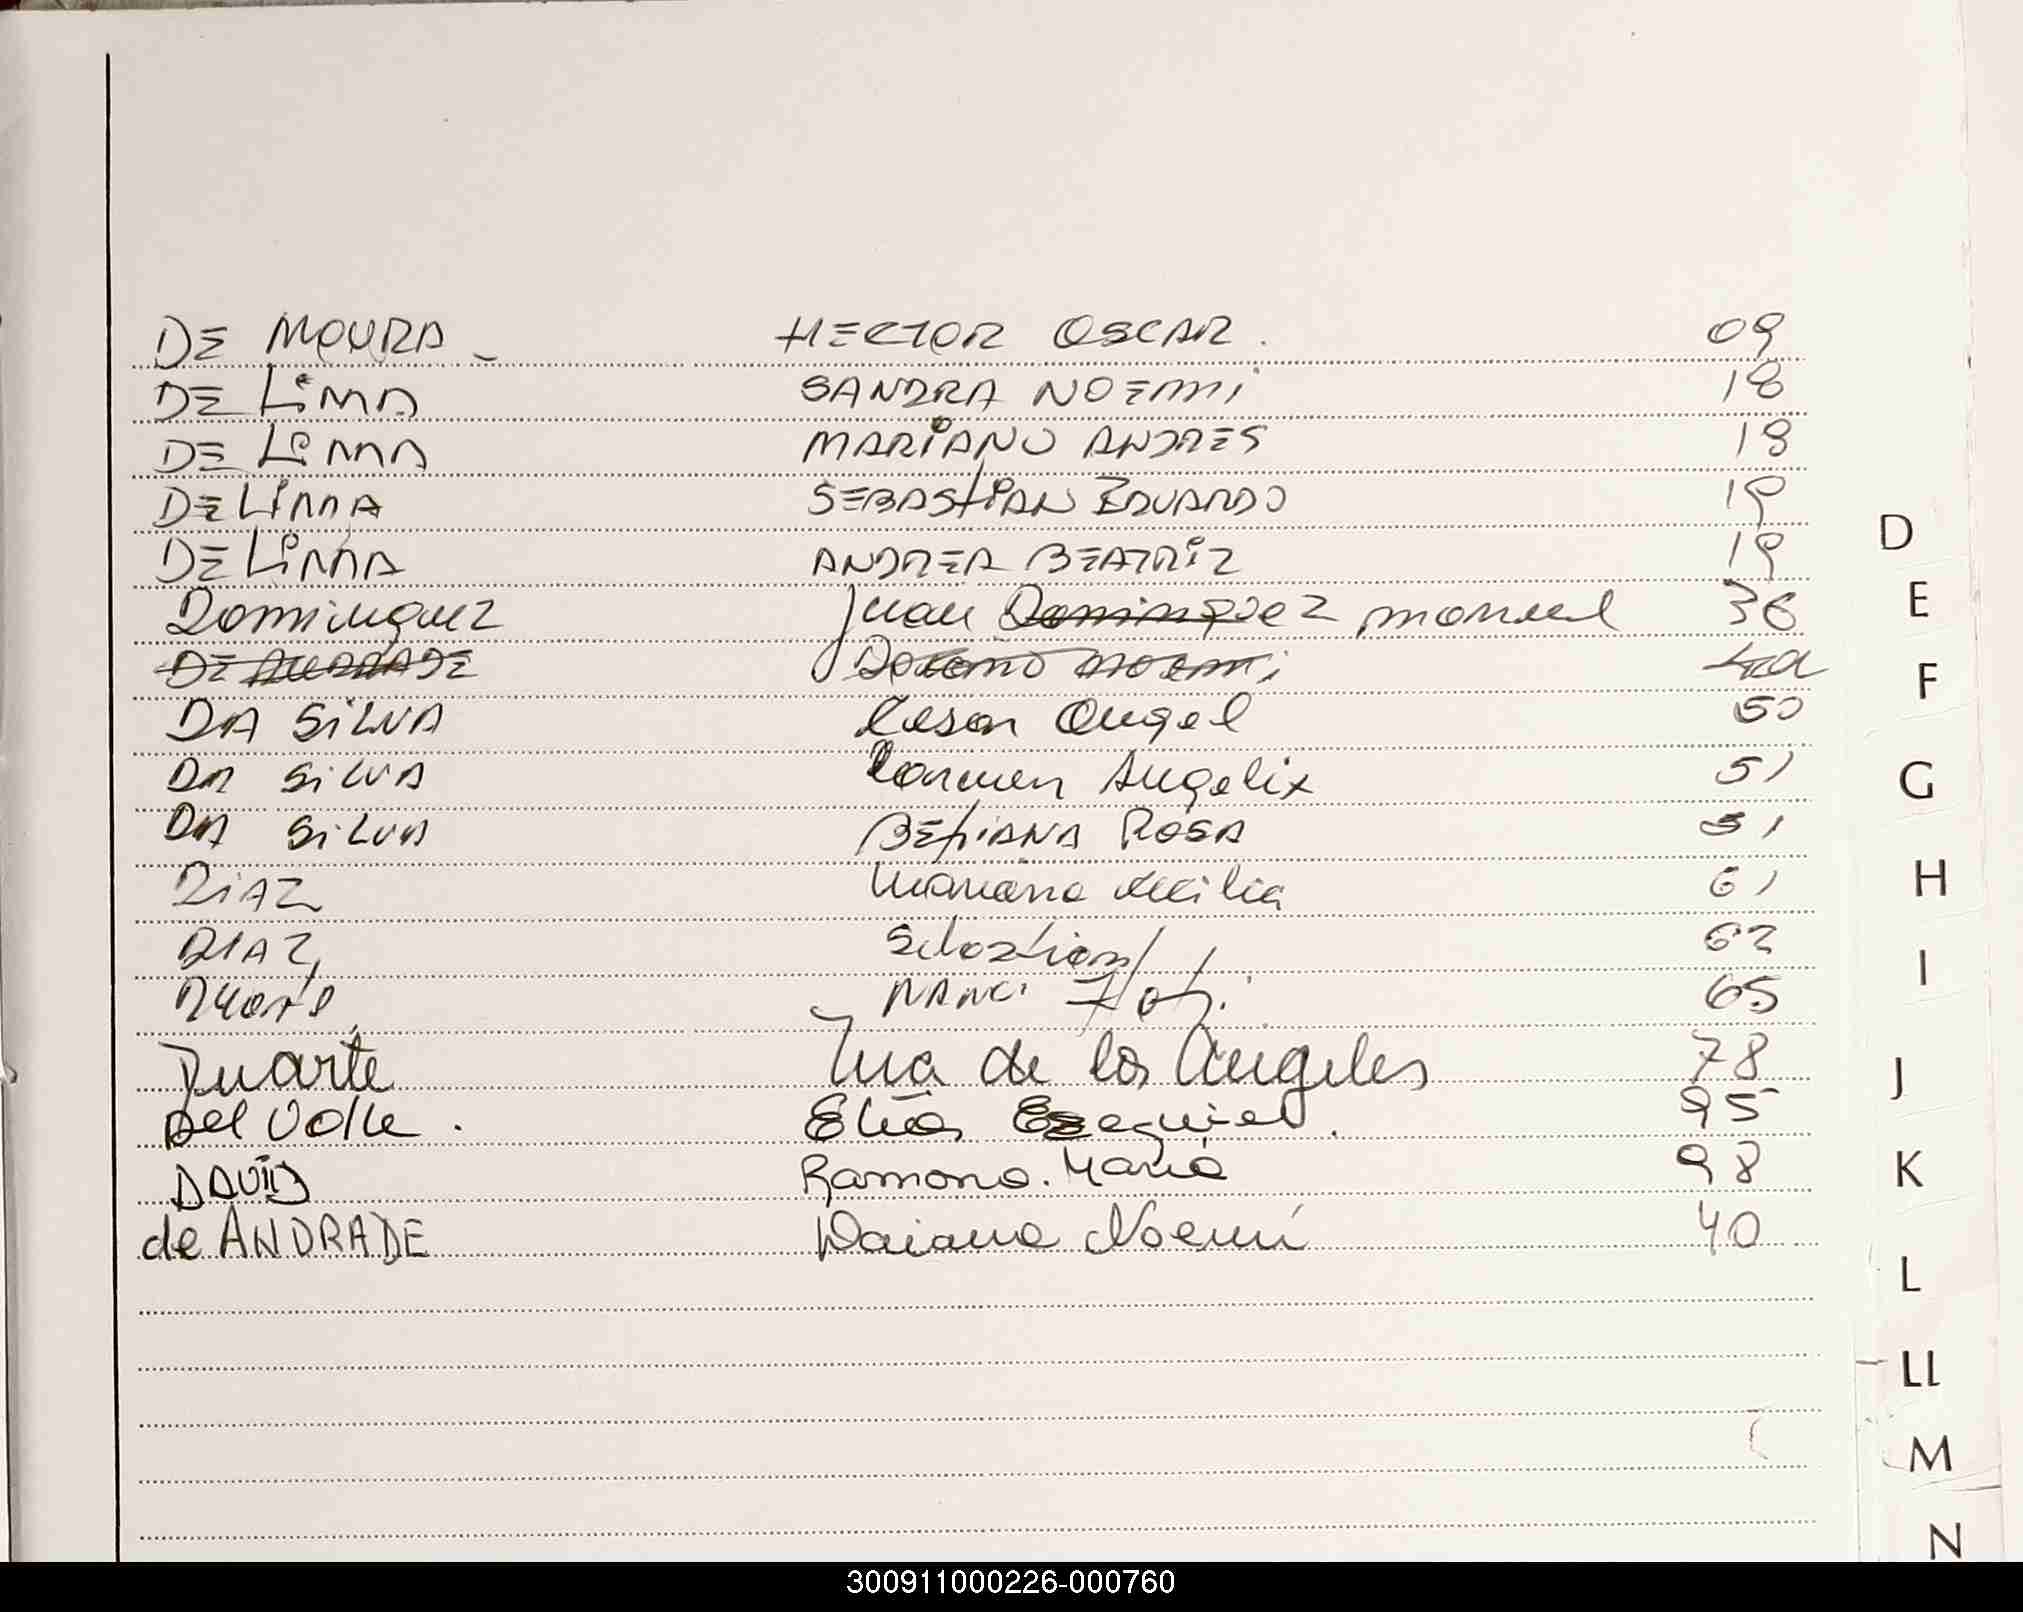 DE MOURA HECTOR OSCAR. 09
DE LiMA SANDRA NOEMI 18
DE LiMA MARIANO ANDRES 18
DE LiMA SEBASTIAN EDUARDO 19
DE LiMA ANDREA BEATRIZ 19
Dominguez Juan Dominguez manuel 38
DE ANDRADE Noemi
DA SiLVA Cesar Angel 50
DA SiLVA Carmen Angelix 51
DA SiLVA BETIANA ROSA 51
DiAZ Mariana 61
DIAZ Sebastian 62
Duarte NANCI 65
Duarte Lucia de los Angeles 78
Del Valle. Elias Ezequiel. 95
DAVID Ramona. Maria 98
de ANDRADE Daiana Noemí 40
D
E
F
G
H
I
J
K
L
LL
M
N
300911000226-000760